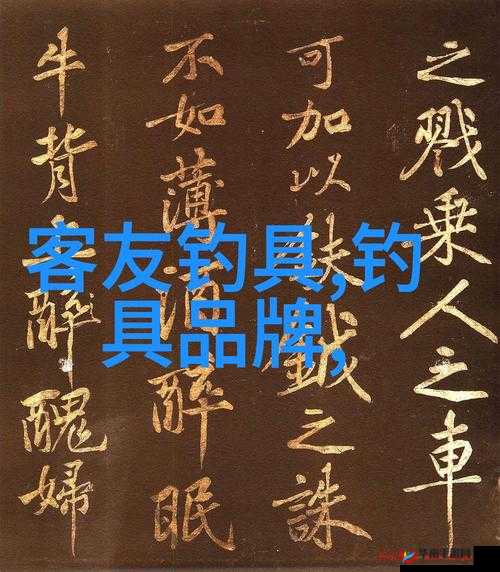 之戮乘人之車
可加以鈇鉞之誅
不如薄酒醉眠
牛背上醉醜婦
客友钓具,钓
具品牌,
华南手游网